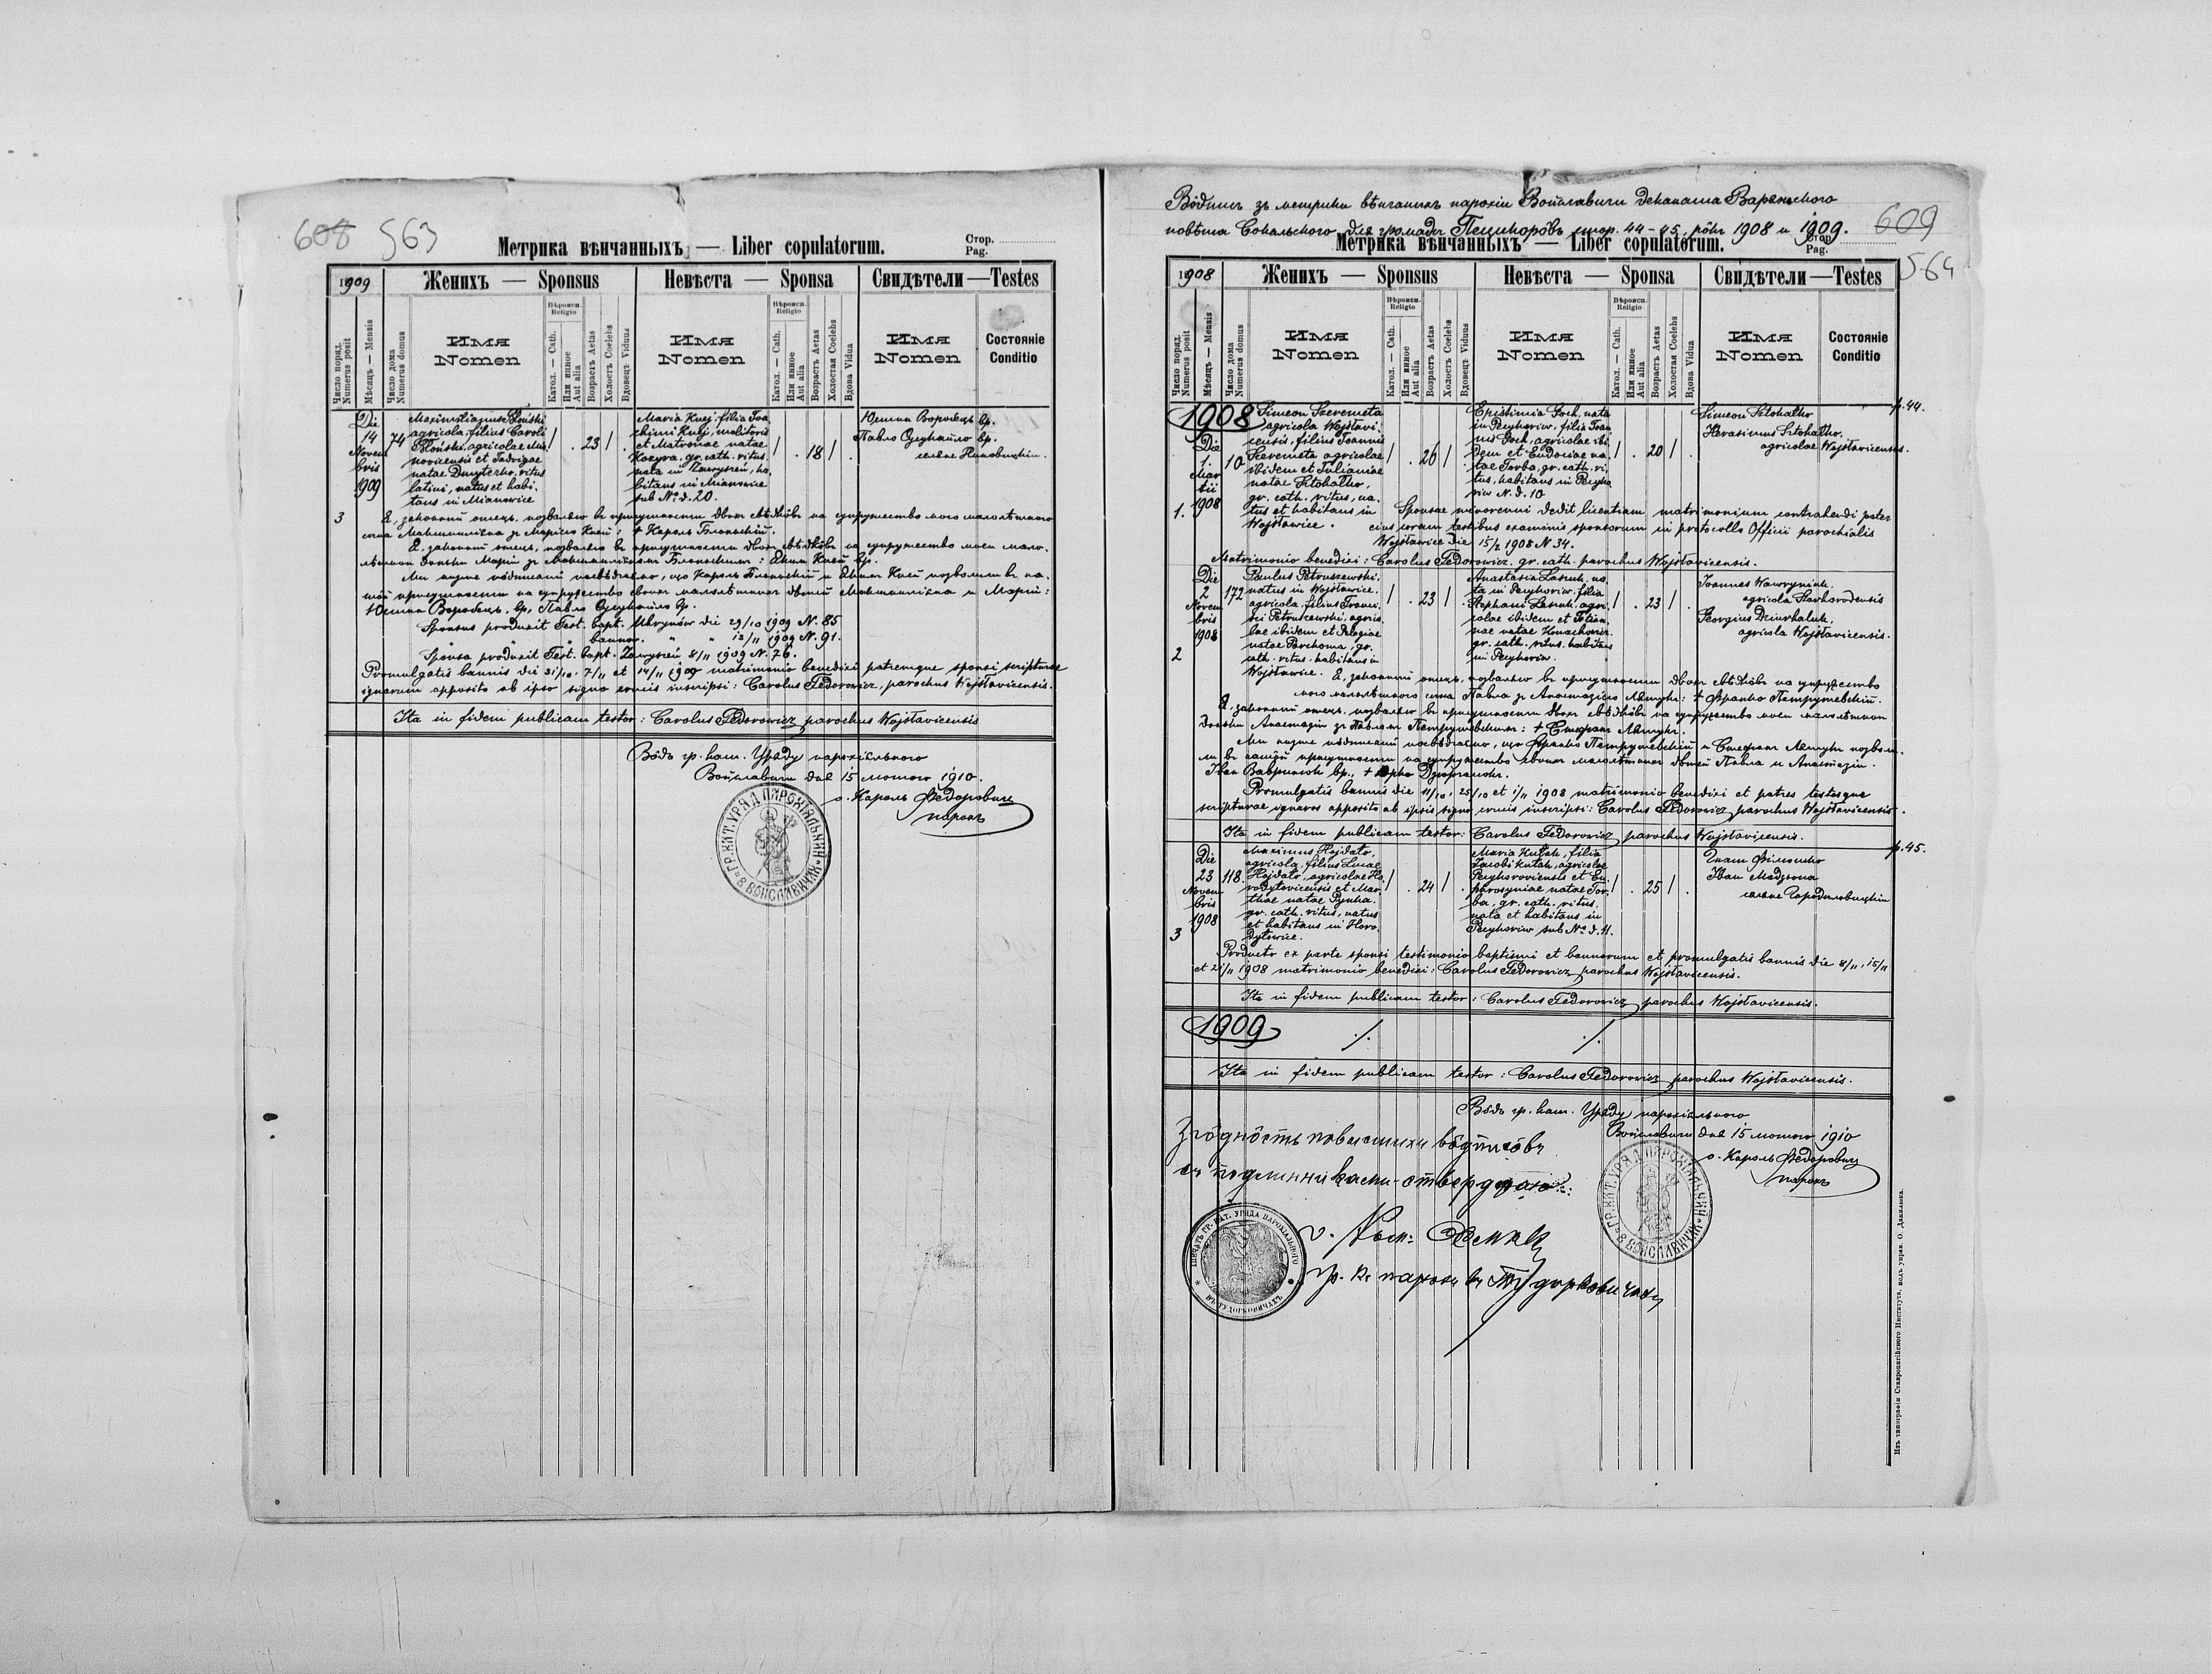 608 563
Метрика вѣнчанныхъ — Liber copulatorum.
Стор.
Pag.
1909
Женихъ — Sponsus
Невѣста — Sponsa
Свидѣтели — Testes
Число поряд.
Numerus posit
Мѣсяцъ — Mensis
Число дома
Numerus domus
Имя
Nomen
Вѣроисп.
Religio
Катол. — Cath.
Или инное
Aut alia
Возрастъ Aetas
Холостъ Coelebs
Вдовецъ Viduus
Имя
Nomen
Вѣроисп.
Religio
Катол. — Cath.
Или инное
Aut alia
Возрастъ Aetas
Холостая Coelebs
Вдова Vidua
Имя
Nomen
Состояніе
Conditio
3
Die
14
Novem
bris
1909
74
Maximilianus Błoński
agricola, filius Caroli
Błoński, agricolae Mia
novicensis et Hedvigae
natae Dmyterko, ritus
latini, natus et habi-
tans in Mianowice
/ . 23 / .
Maria Kuej, filia Joa
chimi Kuej, molitoris
et Matronae natae
Kozyra, gr. cath. ritus.
nata in Zawyszeń, ha
bitans in Mianowice
sub No d. 20.
/ . 18 / .
Юстин Воробець вр.
Павло вр.
селяне
Я, законный отець, позваляю въ присутности двохъ свѣдкôвъ на супружество мого малолѣтного
сына Максимиліяна зъ Маріею Куей: + Кароль Блоньскій.
Я, законный отець, позваляю въ присутности двохъ свѣдкôвъ на супружество моеи мало-
лѣтнои доньки Маріи зъ Максимиліяномъ Блоньскимъ: Якимъ Куей вр.
Ми низше пôдписаніи посвѣдчаемо, що Кароль Блоньскій и Якимъ Куей позволили въ на-
шôй присутности на супружество своихъ малолѣтнихъ дѣтей Максимиліяна и Маріи:
Юстин Воробець вр. Павло вр.
Sponsus produxit Test. bapt. Uhrynów die 29/10 1909 N. 85
" " bannor. " " 13/11 1909 N. 91.
Sponsa produxit Test. bapt. Zawyszeń 8/11 1909 N. 76.
Promulgatis bannis die 31/10. 7/11 et 14/11 1909 matrimonio benedixi patremque sponsi scripturae
ignarum apposito ab ipso signo crucis inscripsi: Carolus Fedorowicz, parochus Wojsławicensis.
Ita in fidem publicam testor: Carolus Fedorowicz parochus Wojsławicensis
Вôдъ гр. кат. Уряду парохіяльного
Войславичи дня 15 лютого 1910.
о. Кароль Федоровичъ
парохъ
ГР. КАТ. УРЯД ПАРОХІЯЛЬНИЙ В ВОЙСЛАВИЧАХ
Вôдписъ зъ метрики вѣнчаныхъ парохіи Войславичи деканата Варяжского
повѣта Сокальского для громады Пецигорôвъ стор. 44-45. рôкъ 1908 и 1909.
609
564
Метрика вѣнчанныхъ — Liber copulatorum.
Стор.
Pag.
1908
Женихъ — Sponsus
Невѣста — Sponsa
Свидѣтели — Testes
Число поряд.
Numerus posit
Мѣсяцъ — Mensis
Число дома
Numerus domus
Имя
Nomen
Вѣроисп.
Religio
Катол. — Cath.
Или инное
Aut alia
Возрастъ Aetas
Холостъ Coelebs
Вдовецъ Viduus
Имя
Nomen
Вѣроисп.
Religio
Катол. — Cath.
Или инное
Aut alia
Возрастъ Aetas
Холостая Coelebs
Вдова Vidua
Имя
Nomen
Состояніе
Conditio
p. 44.
1908
1.
Die
1.
Mar
tii
1908
10
Simeon Szeremeta
agricola Wojsławi
censis, filius Joannis
Szeremeta agricolae
ibidem et Julianiae
natae Sitohalko,
gr. cath. ritus, na-
tus et habitans in
Wojsławice.
/ . 26 /
Epistimia Goch, nata
in Pecyhoriw, filia Joan
nis Goch, agricolae ibi
dem et Eudoxiae na-
tae Torba, gr. cath. ri
tus, habitans in Pecyho
riw N. d. 10
/ . 20 / .
Simeon Sitohalko
Herasimus Sitohalko,
agricolae Wojsławicenses.
Sponsae minorenni dedit licentiam matrimonium contrahendi pater
eius coram testibus examinis sponsorum in protocollo Officii parochialis
Wojsławice die 15/2 1908 N 34.
Matrimonio benedixi: Carolus Fedorowicz, gr. cath. parochus Wojsławicensis.
2
Die
2
Novem
bris
1908
172
Paulus Petruszewski,
natus in Wojsławice,
agricola, filius Franci
sci Petruszewski, agrico
lae ibidem et Pelagiae
natae Parchoma, gr.
cath. ritus, habitans in
Wojsławice.
/ . 23 /
Anastasia Laszuk, na
ta in Pecyhoriw, filia
Stephani Laszuk, agri-
colae ibidem et Tatian
nae natae
gr. cath. ritus, habitans
in Pecyhoriw.
/ . 23 / .
Joannes Wawryniuk,
agricola Starhorodensis
Georgius Dziurhaluk,
agricola Wojsławicensis.
Я, законный отець, позваляю въ присутности двохъ свѣдкôвъ на супружество
мого малолѣтного сына Павла зъ Анастазіею Ляшукъ: + Франко Петрушевскій.
Я законный отець, позваляю въ присутности двохъ свѣдкôвъ на супружество моеи малолѣтнои
доньки Анастазіи зъ Павломъ Петрушевскимъ: + Стефанъ Ляшукъ.
Ми низше пôдписаніи посвѣдчаемо, що Франко Петрушевскій и Стефанъ Ляшукъ позволи-
ли въ нашôй присутности на супружество своихъ малолѣтнихъ дѣтей Павла и Анастазіи.
Иван Вавринюкъ вр.,
Promulgatis bannis die 11/10, 25/10 et 1/11 1908 matrimonio benedixi et patres testesque
scripturae ignaros apposito ab ipsis signo crucis inscripsi: Carolus Fedorowicz parochus Wojsławicensis
Ita in fidem publicam testor: Carolus Fedorowicz parochus Wojsławicensis.
p. 45.
3
Die
23
Novem
bris
1908
118.
Maximus Hojdato,
agricola, filius Lucae
Hojdato, agricolae Ho
rodyłovicensis et Mar
thae natae Pynha,
gr. cath. ritus, natus
et habitans in Horo
dyłowice.
/ . 24 / .
Maria Kutak, filia
Jacobi Kutak, agricolae
Pecyhoroviensis et Eu
phrosyniae natae Tor-
ba, gr. cath. ritus,
nata et habitans in
Pecyhoriw sub No d. 11.
/ . 25 / .
Игнат Филонко
Иван
селяне Городиловицкіи
Producto ex parte sponsi testimonio baptismi et bannorum et promulgatis bannis die 8/11, 15/11
et 21/11 1908 matrimonio benedixi: Carolus Fedorowicz parochus Wojsławicensis.
Ita in fidem publicam testor: Carolus Fedorowicz parochus Wojsławicensis.
1909 ./. ./.
Ita in fidem publicam testor: Carolus Fedorowicz parochus Wojsławicensis.
Вôдъ гр. кат. Уряду парохіяльного
Войславичи дня 15 лютого 1910
о. Кароль Федоровичъ
парохъ
ГР. КАТ. УРЯД ПАРОХІЯЛЬНИЙ В ВОЙСЛАВИЧАХ
Згôдность повысшихъ вôдписôвъ
съ подлинниками ствердзаю:
гр. к. парохъ въ Тудорковичахъ
ПЕЧАТЬ ГР. КАТ. УРЯДА ПАРОХІАЛЬНОГО ВЪ ТУДОРКОВИЧАХЪ
Изъ типографіи Ставропигійского Института, подъ управ. О. Данилюка.